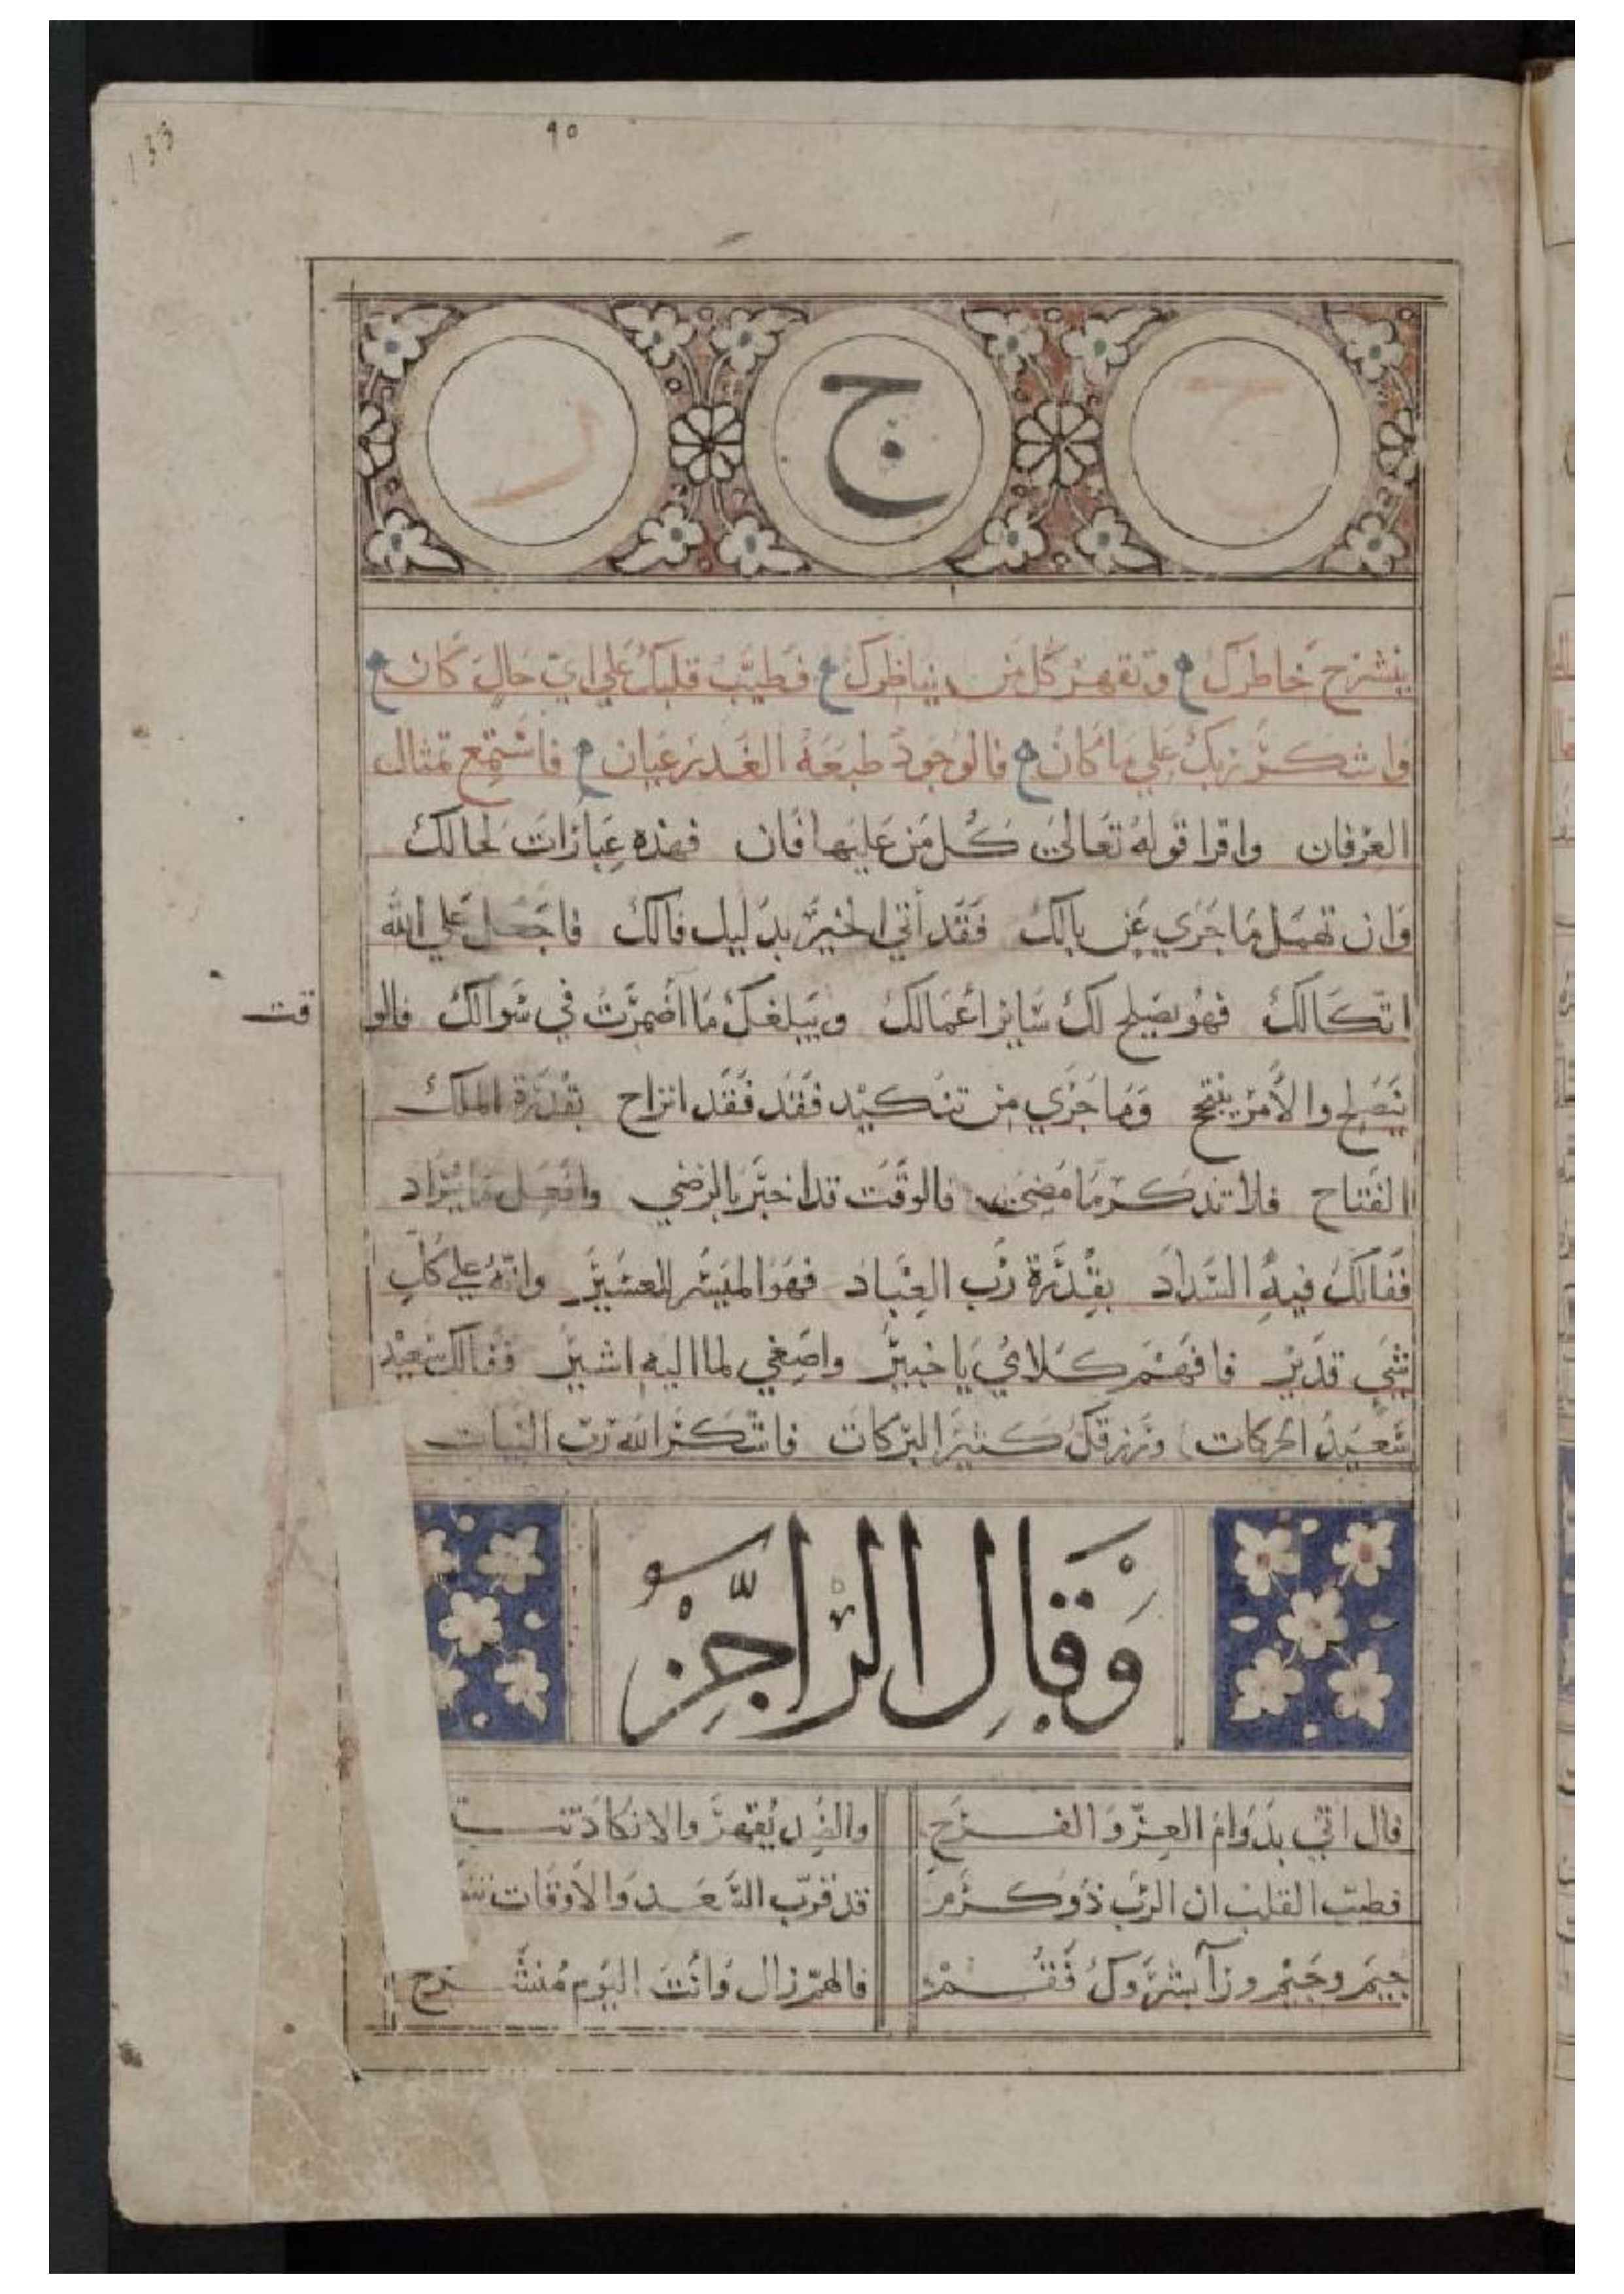 133
٩٥
ج ج ر
ينشرح خاطرك وتقهر كل من يناظرك فطيب قلبك علي اي حال كان
واشكر ربك علي ما كان فالوجود طبعه الغدر عيان فاستمع تمثال
العرفان واقرا قوله تعالي كل من عليها فان فهذه عبارات لحالك
وان تهمل ما جري عن بالك فقد أتي الخير بدليل فالك فاجعل علي الله
اتكالك فهو يصلح لك ساير اعمالك ويبلغك ما اضمرت في سوالك فالوقت
يصلح والامر ينجح وما جري من تنكيد فقد فقد انزاح بقدرة الملك
الفتاح فلا تذكر ما مضي فالوقت قد اخبر بالرضي وافعل ما يراد
ففالك فيه السداد بقدرة رب العباد فهو الميسر للعسير وانه علي كل
شي قدير فافهم كلامي يا خبير واصغي لما اليه اشير ففالك سعيد
سعيد الحركات ورزقك كثير البركات فاشكر الله رب النبات
وَقَالِ الرَّاجِز
فال اتي بدوام العز والفرح والضد يقهر والانكاد
فطب القلب ان الرب ذو كرم قد قرب السعد والاوقات
جيم وجيم ورا بشروك فقم فالهم زال وانت اليوم منشرح